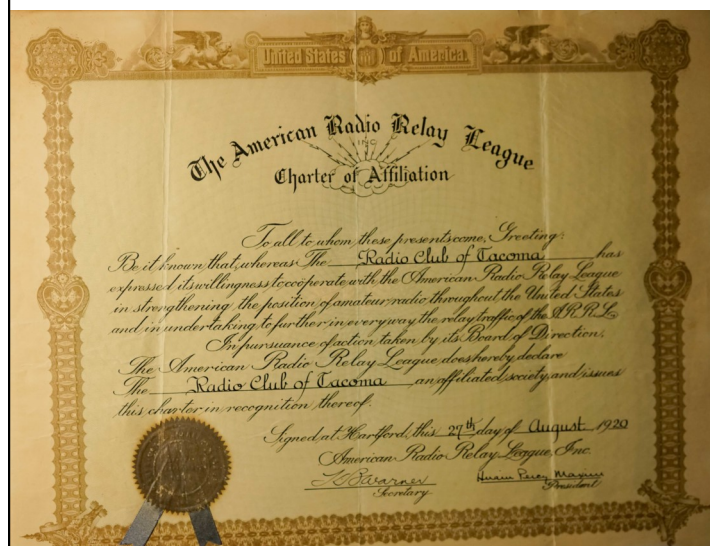 United States of America.
The American Radio Relay League
INC.
Charter of Affiliation
To all to whom these presents come, Greeting:
Be it known that, whereas The Radio Club of Tacoma has
expressed its willingness to coöperate with the American Radio Relay League
in strengthening the position of amateur radio throughout the United States
and in undertaking to further in every way the relay traffic of the A.R.R.L.
In pursuance of action taken by its Board of Direction,
The American Radio Relay League does hereby declare
The Radio Club of Tacoma an affiliated society, and issues
this charter in recognition thereof.
Signed at Hartford, this 27th day of August 1920
American Radio Relay League, Inc.
Hiram Percy Maxim
Secretary President